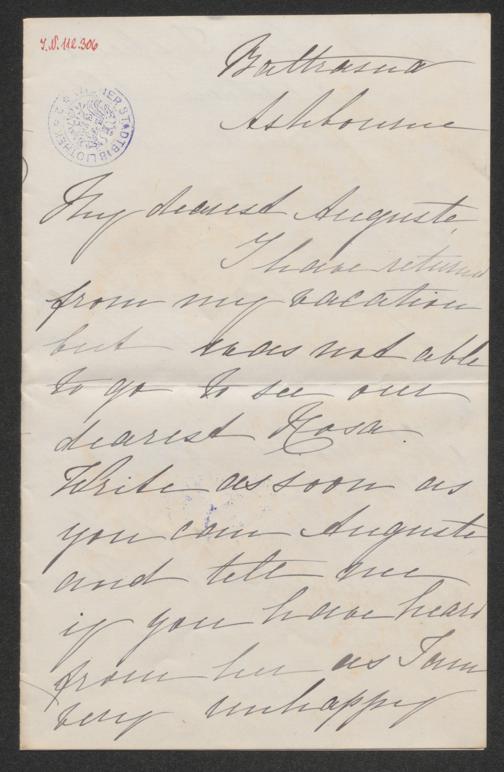 I.N. 112.306
WIENER STADTBIBLIOTHEK
Baltrasna
Ashbourne
My dearest Auguste,
I have returned
from my vacation
but was not able
to go to see our
dearest Rosa.
Write as soon as
you can Auguste
and tell me
if you have heard
from her as I am
very unhappy